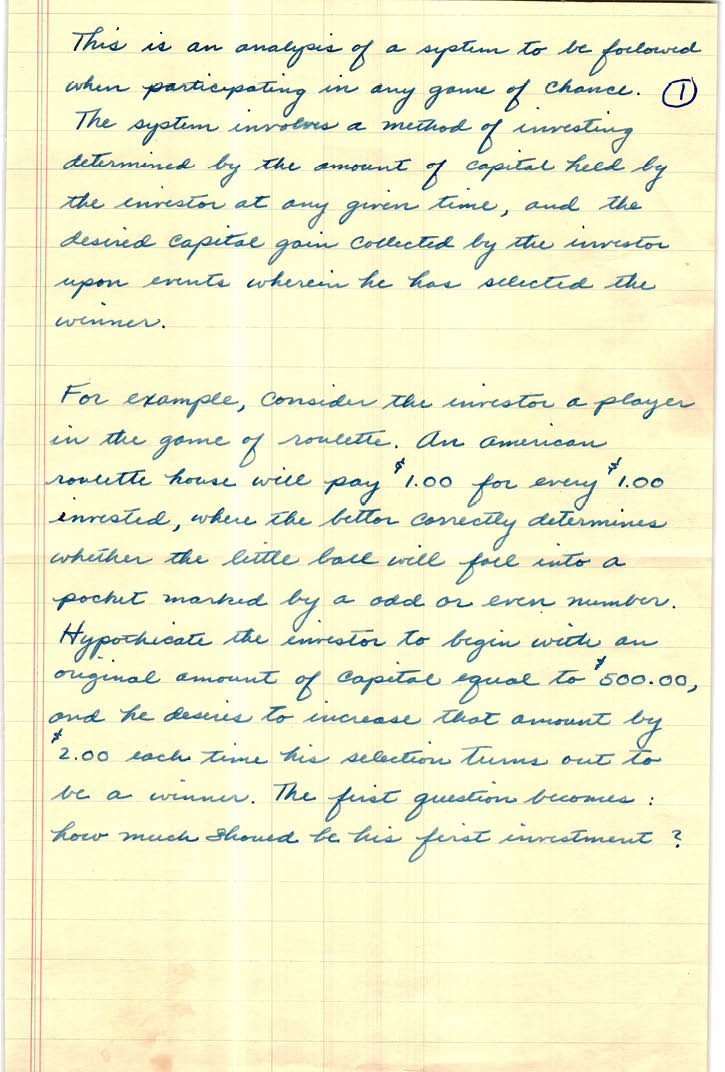 This is an analysis of a system to be followed
when participating in any game of chance. 1
The system involves a method of investing
determined by the amount of capital held by
the investor at any given time, and the
desired capital gain collected by the investor
upon events wherein he has selected the
winner.
For example, consider the investor a player
in the game of roulette. An american
roulette house will pay $1.00 for every $1.00
invested, where the bettor correctly determines
whether the little ball will fall into a
pocket marked by a odd or even number.
Hypothicate the investor to begin with an
original amount of capital equal to $500.00,
and he desires to increase that amount by
$2.00 each time his selection turns out to
be a winner. The first question becomes:
how much should be his first investment?